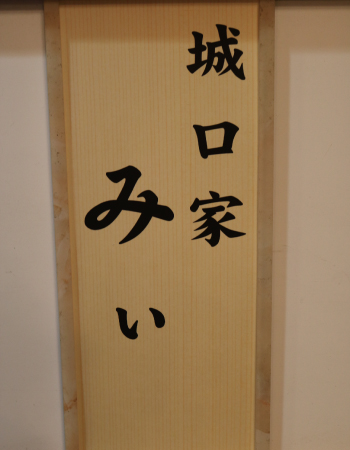 城口家
みい